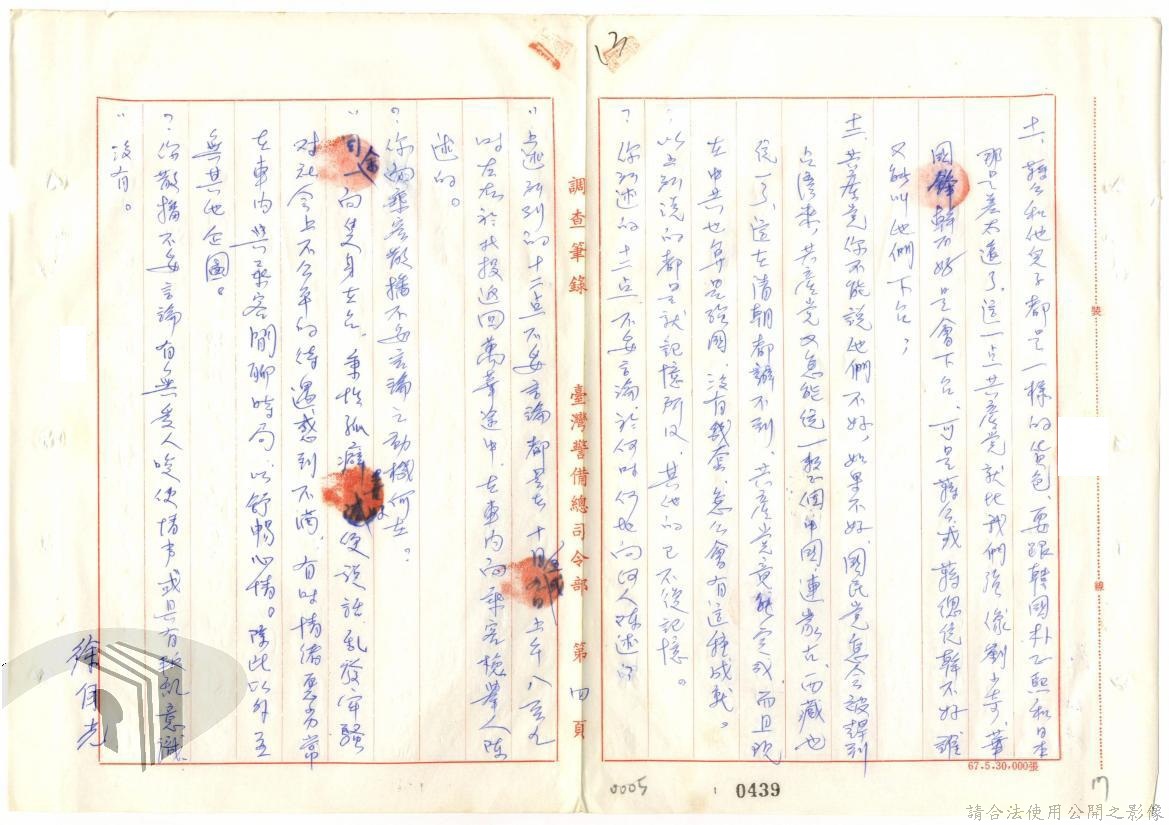 十一、蔣公和他兒子都是一樣的貨色、要跟韓國朴正熙和日本
那是差太遠了、這一点共產党就比我們強、像劉少奇、華
國鋒幹不好是會下台、可是蔣公或蔣總統幹不好誰
又能叫他們下台；
十二、共產党你不能說他們不好、如果不好、國民党怎会被趕到
台湾來、共產党又怎能統一整個中國、連蒙古、西藏也
統一了、這在清朝都辦不到、共產党竟能完成、而且現
在中共也算是強國、沒有幾套、怎么會有這種成就。
以上所說的都是就記憶所及、其他的已不復記憶。
？你所述的十二点不妥言論、於何时何地向何人陳述的
〃上述所列的十二点不妥言論都是在十月六日上午八至九
时左右於我投返回萬華途中、在車内向乘客檢舉人陳
述的。
？你向乘客散播不妥言論之動機何在？
〃我一向隻身在台、秉性孤癖、遇事便說話乱發牢騷
对社会上不公平的待遇感到不滿、有时情绪惡劣常
在車内與乘客閒聊时局、以舒暢心情。除此以外並
無其他企圖。
？你散播不妥言論有無受人唆使情事或具有叛乱意識
〃沒有。
徐月光
調查筆錄
臺灣警備總司令部
第四頁
裝
線
67.5.30,000張
0005
0439
17
請合法使用公開之影像